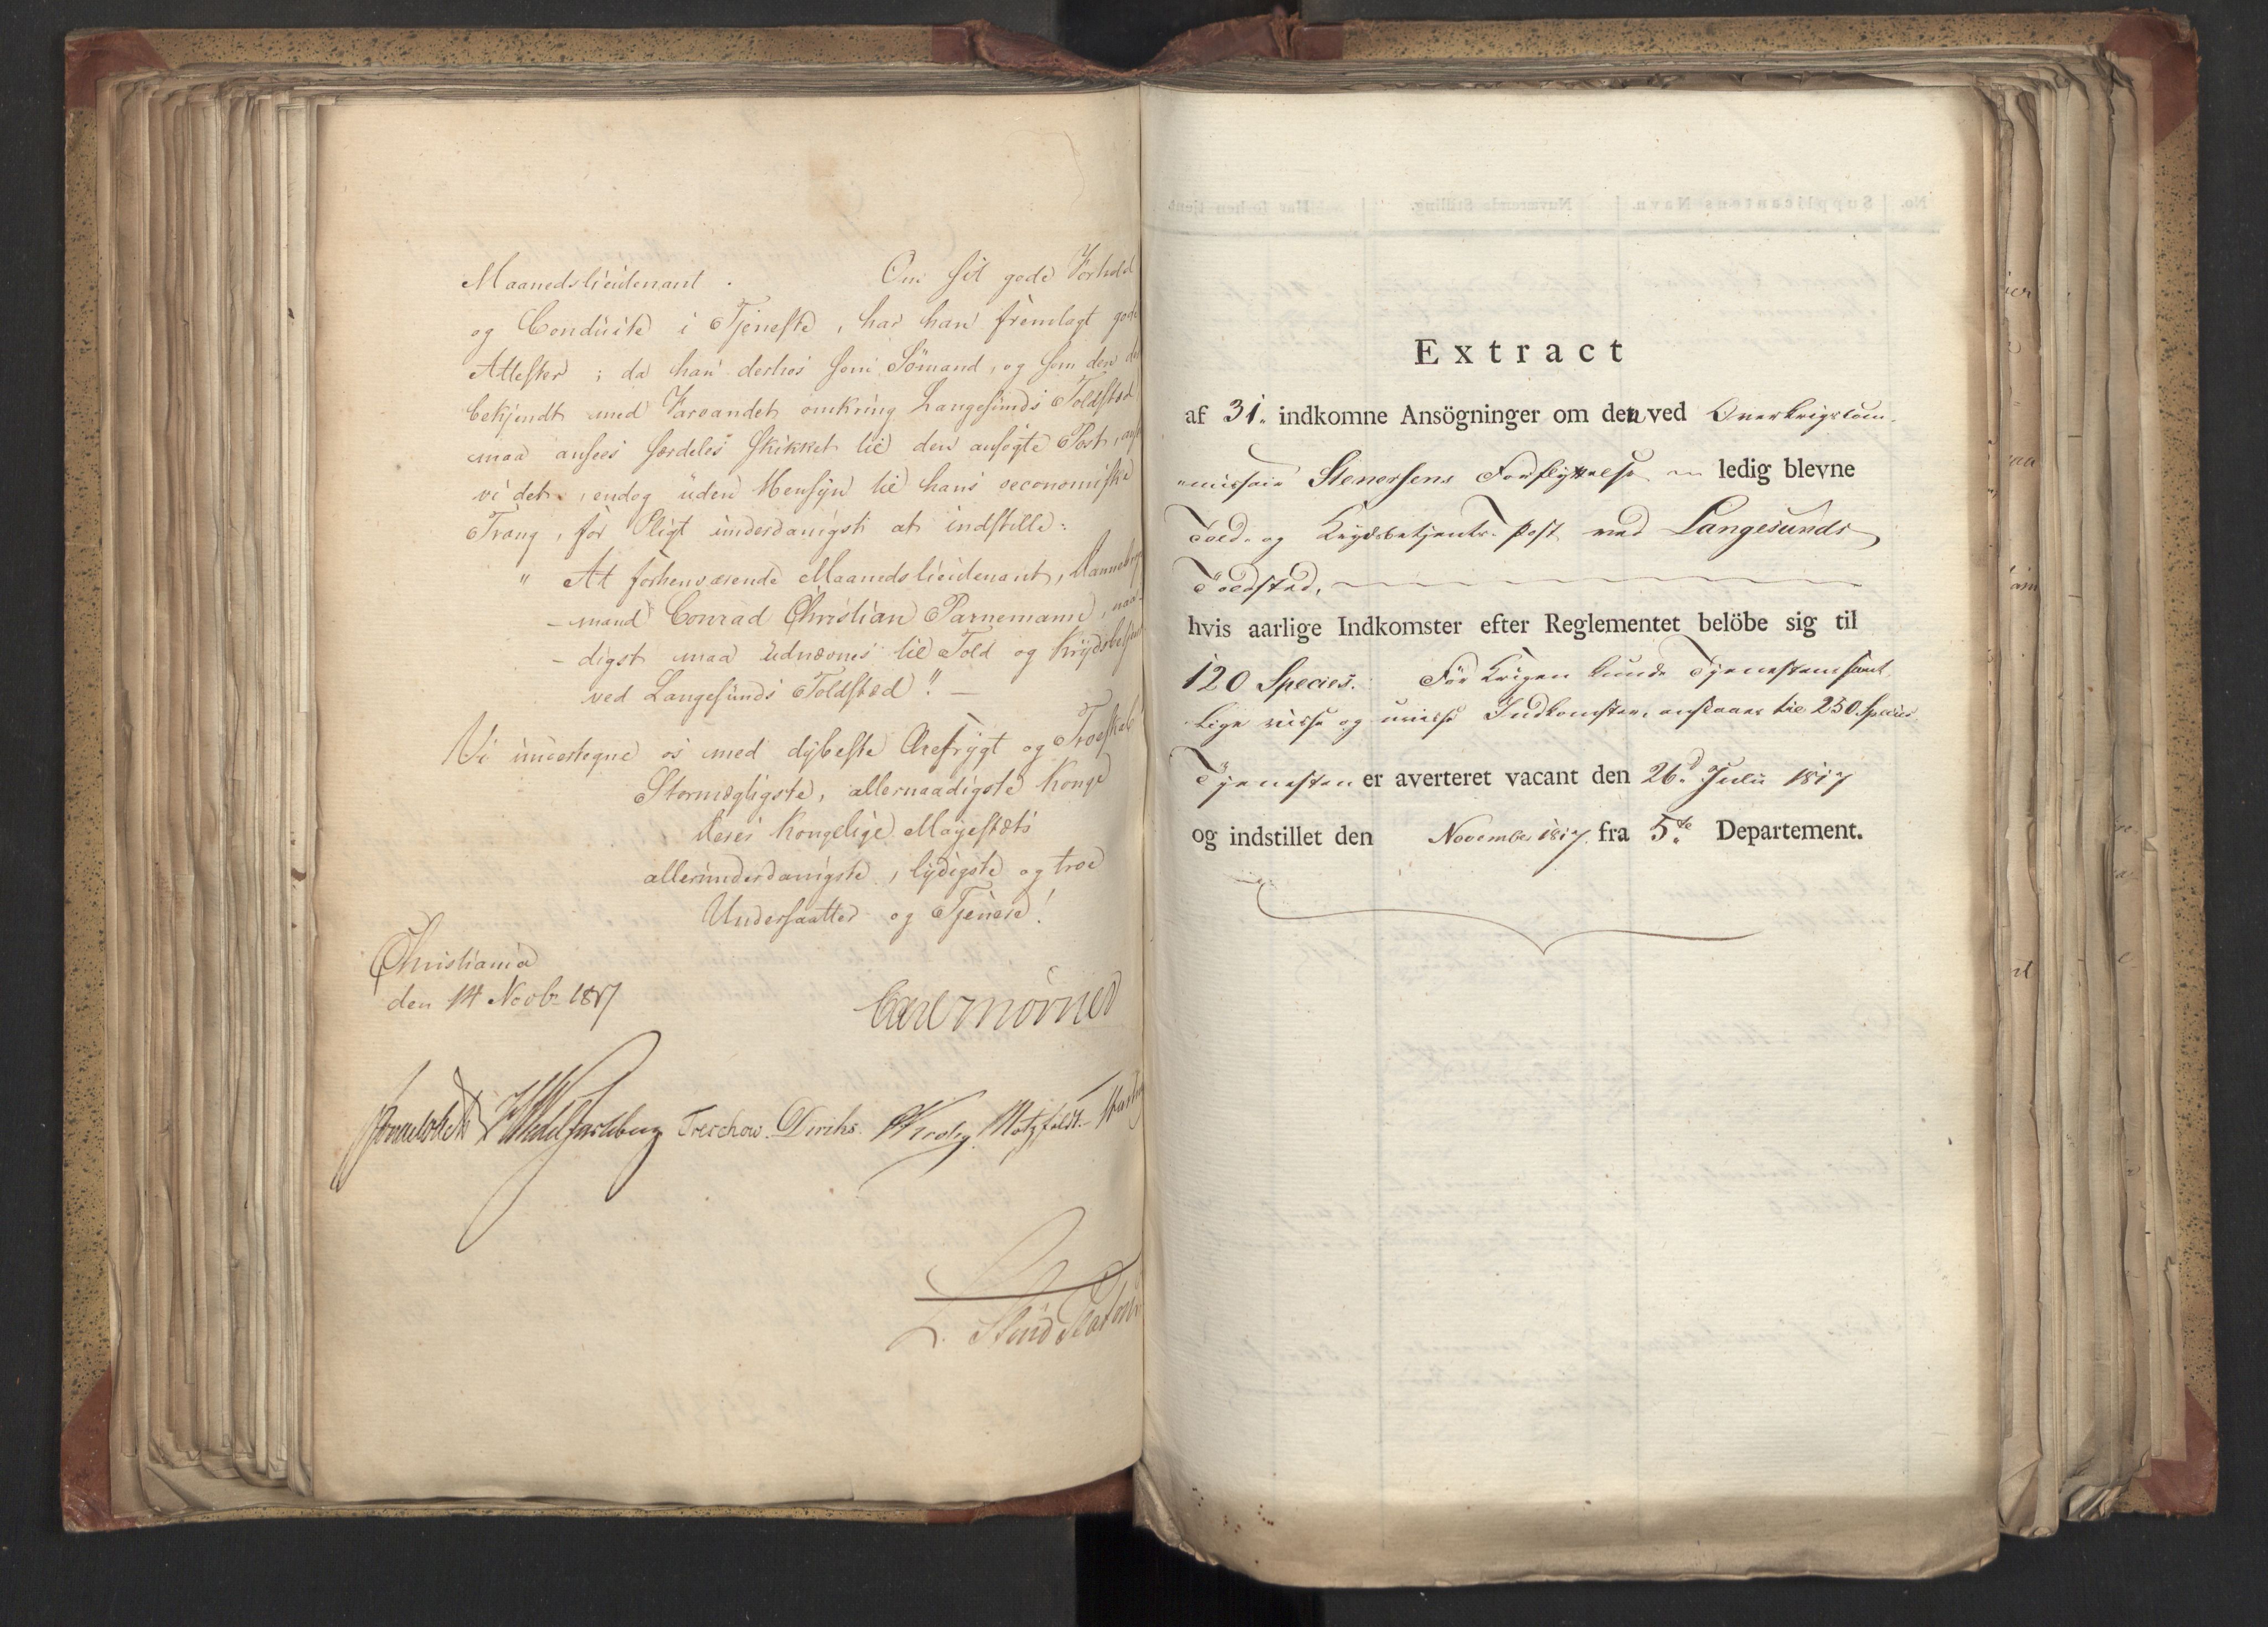 Maanedslieutenant. Om sit gode Forhold
og Conduite i Tjeneste, har han fremlagt gode
Attester; da han derhos som Sömand, og som den der
bekjendt med Farvandet omkring Langesunds Toldsted
maa ansees særdeles skikket til den ansøgte Post,
vi det, endog uden Hensyn til hans oeconomiske
Trang, for Pligt underdanigst at indstille:
" At forhenværende Maanedslieutenant, Dannebrogs
- mand Conrad Christian Parnemann, naa-
- digst maa udnævnes til Told og Krydsbetjent
ved Langesunds Toldsted". —
Vi undertegne os med dybeste Ærefrygt og Troeskab
Stormægtigste, allernaadigste Konge
Deres Kongelige Mayestæts
allerunderdanigste, lydigste og troe
Undersaatter og Tjenere!
Christiania
den 14 Novbr 1817
Carl Mörner
Sommerhielm HWedel Jarlsberg Treschow. Diriks. Krog Motzfeldt.
Extract
af 31. indkomne Ansögninger om den ved Overkrigscom-
missair Stenersens Forflyttelse ledig blevne
Told- og Krydsbetjents-Post ved Langesunds
Toldsted,
hvis aarlige Indkomster efter Reglementet belöbe sig til
120 Species. För Krigen kunde Tjenestens samt
lige visse og uvisse Indkomster, anslaaes til 250 Species
Tjenesten er averteret vacant den 26d Julii 1817
og indstillet den November 1817. fra 5te Departement.